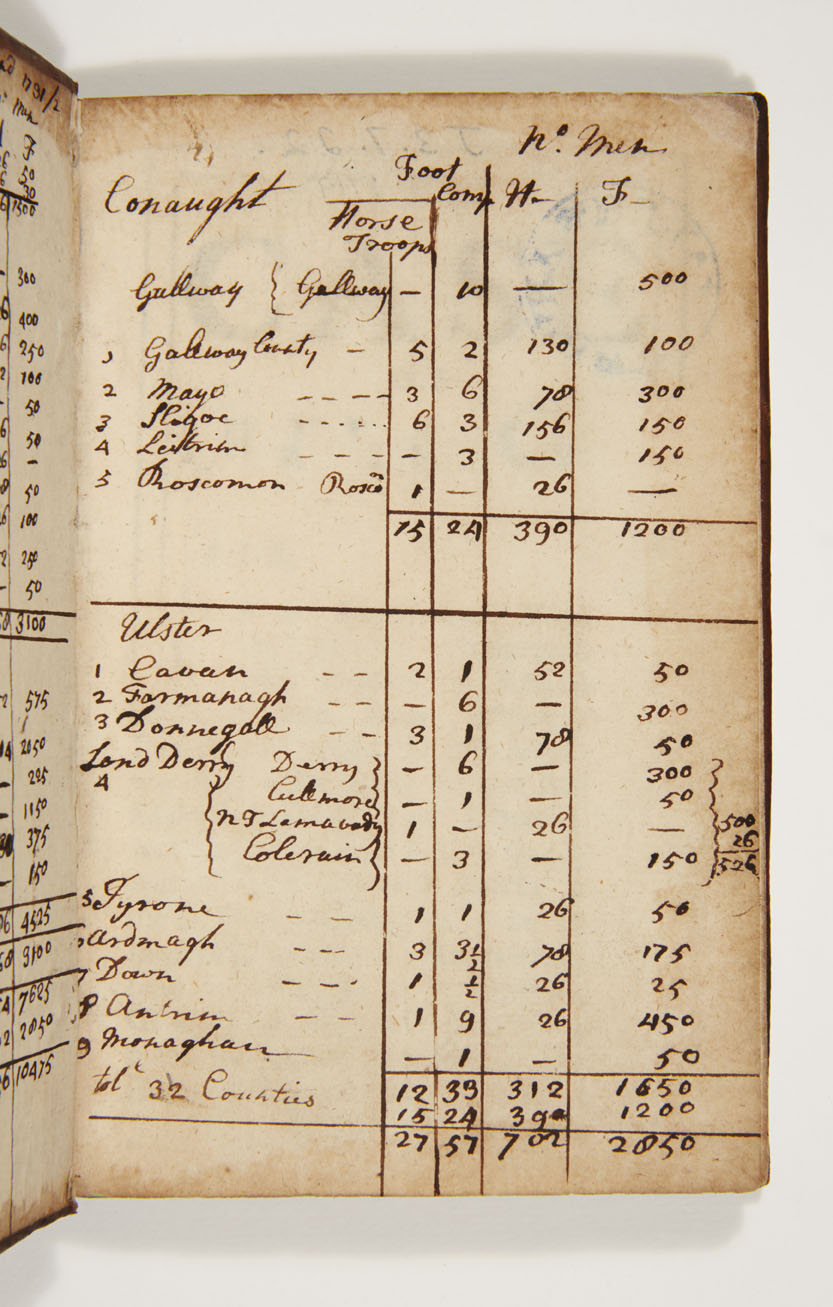 1731/2
Men
F
50
30
1500
300
400
250
100
50
50
—
50
100
250
50
3100
575
2050
225
1150
375
150
4525
3100
7625
2850
10475
No. Men
Foot
Conaught Comp H— F—
Horse
Troops
Gallway { Gallway — 10 — 500
1 Gallway County — 5 2 130 100
2 Mayo - - - - 3 6 78 300
3 Sligoe - - - - - 6 3 156 150
4 Leitrim - - - — 3 — 150
5 Roscomon Rosco 1 — 26 —
15 24 390 1200
Ulster
1 Cavan - - 2 1 52 50
2 Farmanagh - - — 6 — 300
3 Donnegall - - 3 1 78 50
Lond Derry Derry } — 6 — 300
4 { Cullmore — 1 — 50
N T Lamavady 1 — 26 — 500
26
Colerain } — 3 — 150 526
5 Tyrone - - 1 1 26 50
Ardmagh - - 3 3 1/2 78 175
7 Down - - - 1 1/2 26 25
8 Antrim - - 1 9 26 450
9 Monaghan — 1 — 50
totl 32 Counties 12 33 312 1650
15 24 390 1200
27 57 702 2850